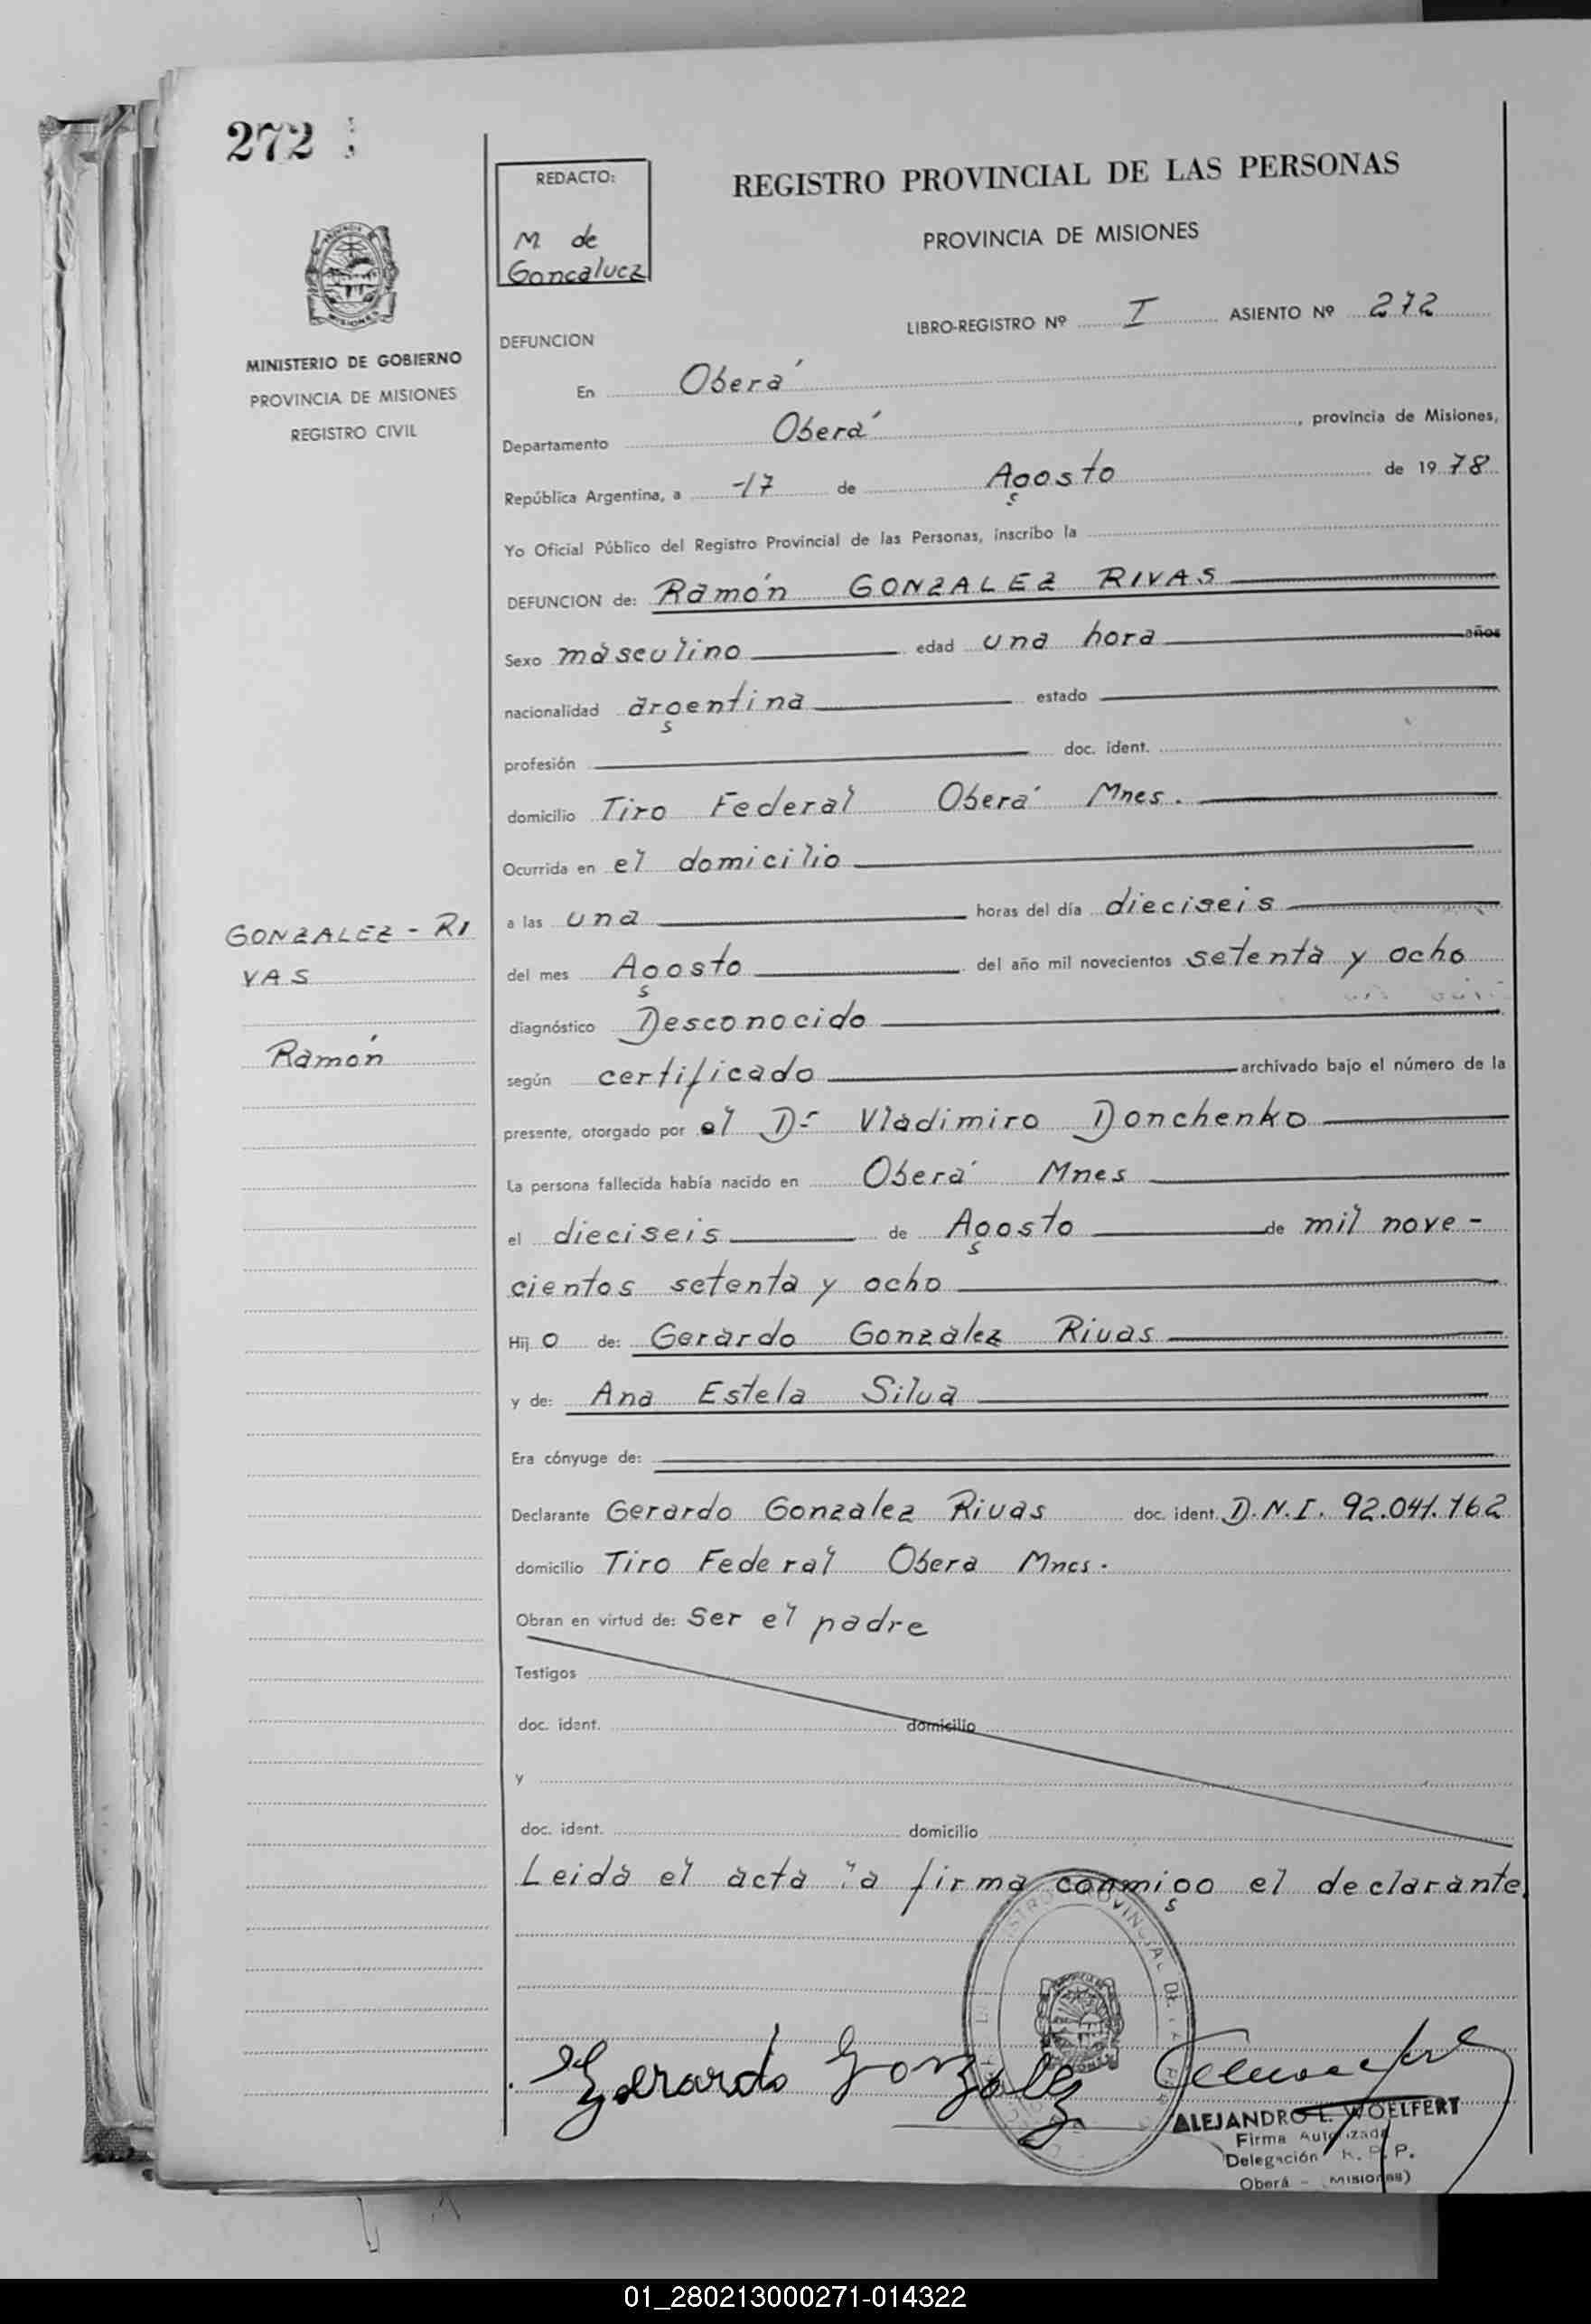 272
REDACTO:
M de
Goncalucz
REGISTRO PROVINCIAL DE LAS PERSONAS
PROVINCIA DE MISIONES
LIBRO-REGISTRO Nº I ASIENTO Nº 272
MINISTERIO DE GOBIERNO
PROVINCIA DE MISIONES
REGISTRO CIVIL
DEFUNCION
En Oberá
Departamento Oberá, provincia de Misiones,
República Argentina, a -17 de Agosto de 1978
Yo Oficial Público del Registro Provincial de las Personas, inscribo la
DEFUNCION de: Ramón GONZALEZ RIVAS
Sexo masculino edad una hora años
nacionalidad argentina estado
profesión doc. ident.
domicilio Tiro Federal Oberá Mnes.
Ocurrida en el domicilio
a las una horas del día dieciseis
GONZALEZ - RI
VAS
Ramón
del mes Agosto del año mil novecientos setenta y ocho
diagnóstico Desconocido
según certificado archivado bajo el número de la
presente, otorgado por el Dr Vladimiro Donchenko
La persona fallecida había nacido en Oberá Mnes
el dieciseis de Agosto de mil nove-
cientos setenta y ocho
Hijo de: Gerardo Gonzalez Rivas
y de: Ana Estela Silva
Era cónyuge de:
Declarante Gerardo Gonzalez Rivas doc. ident. D.N.I. 92.041.162
domicilio Tiro Federal Obera Mnes.
Obran en virtud de: Ser el padre
Testigos
doc. ident. domicilio
y
doc. ident. domicilio
Leida el acta la firma conmigo el declarante.
Gerardo Gonzalez
ALEJANDRO L. WOELFERT
Firma Autorizada
Delegación R. P. P.
Oberá - (Misiones)
01_280213000271-014322